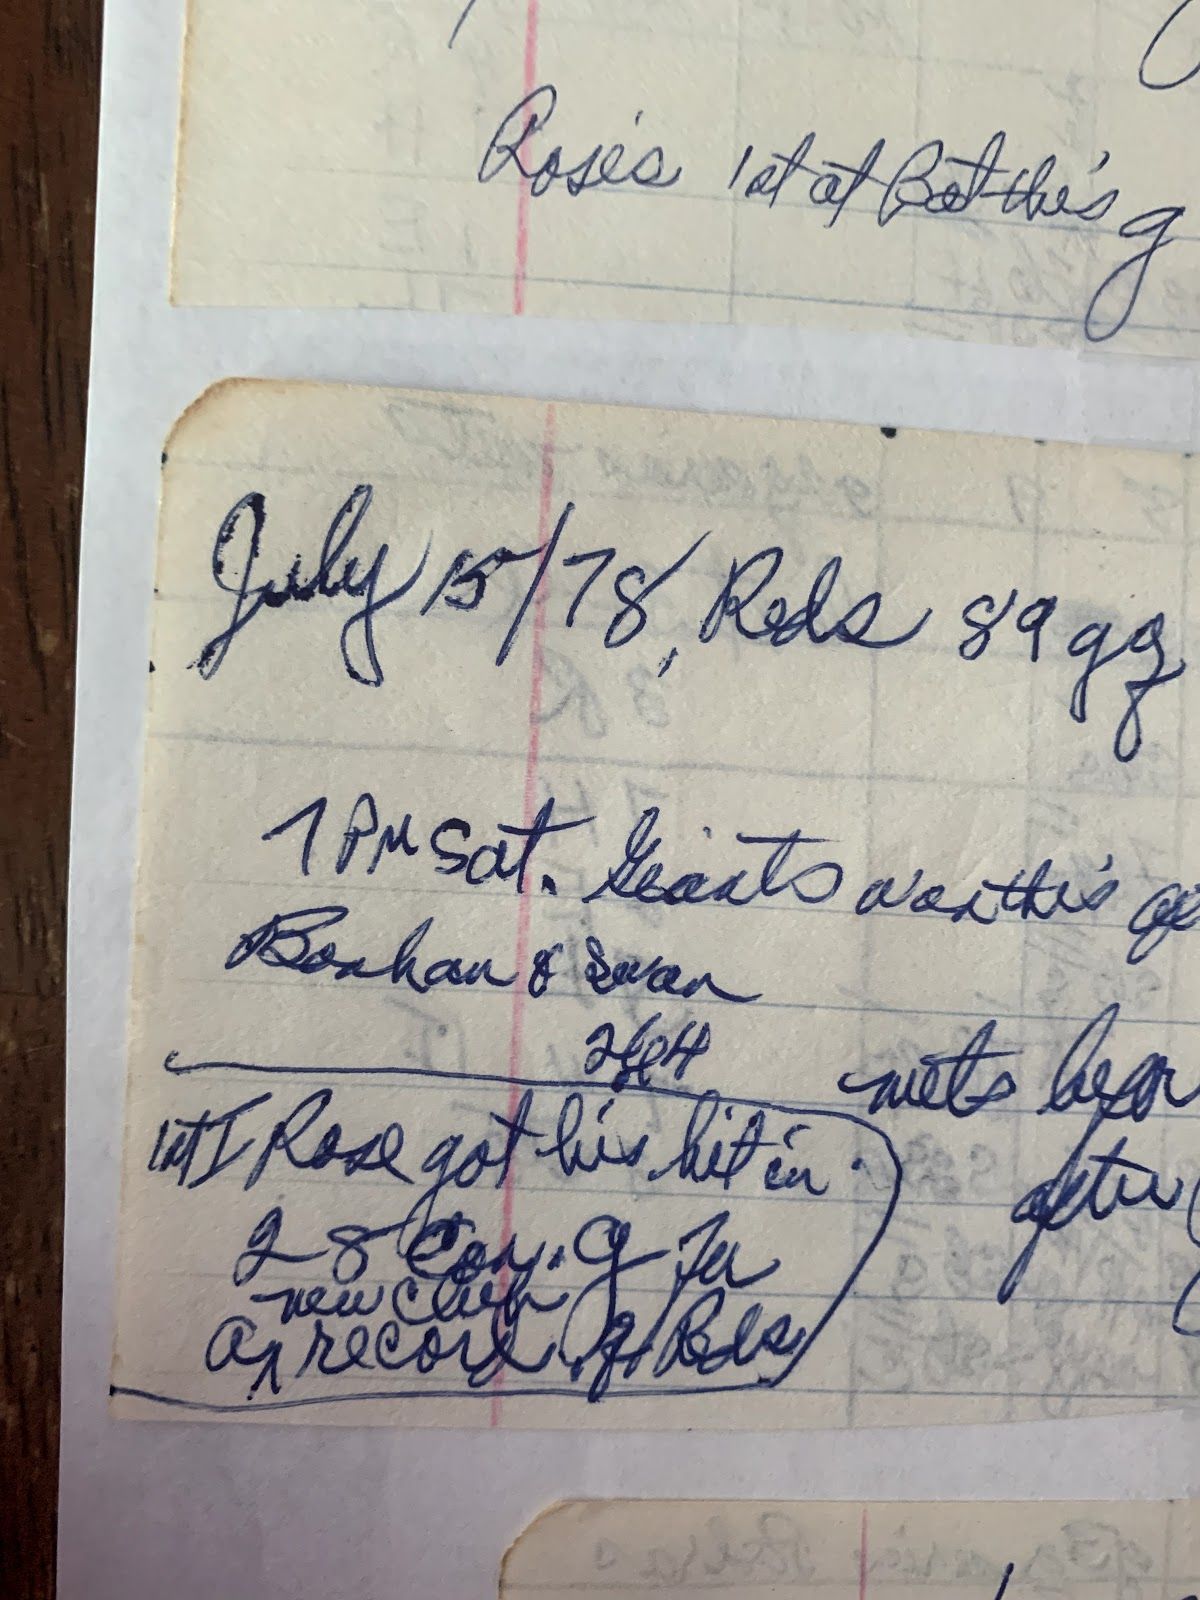 Rose's 1st at Bat this g
July 15/78, Reds 89 g
7 PM Sat. Giants won this
Bonham & Swan
mets
1st I Rose got his hit in
28 Con. G for
new club
a record for Reds
after